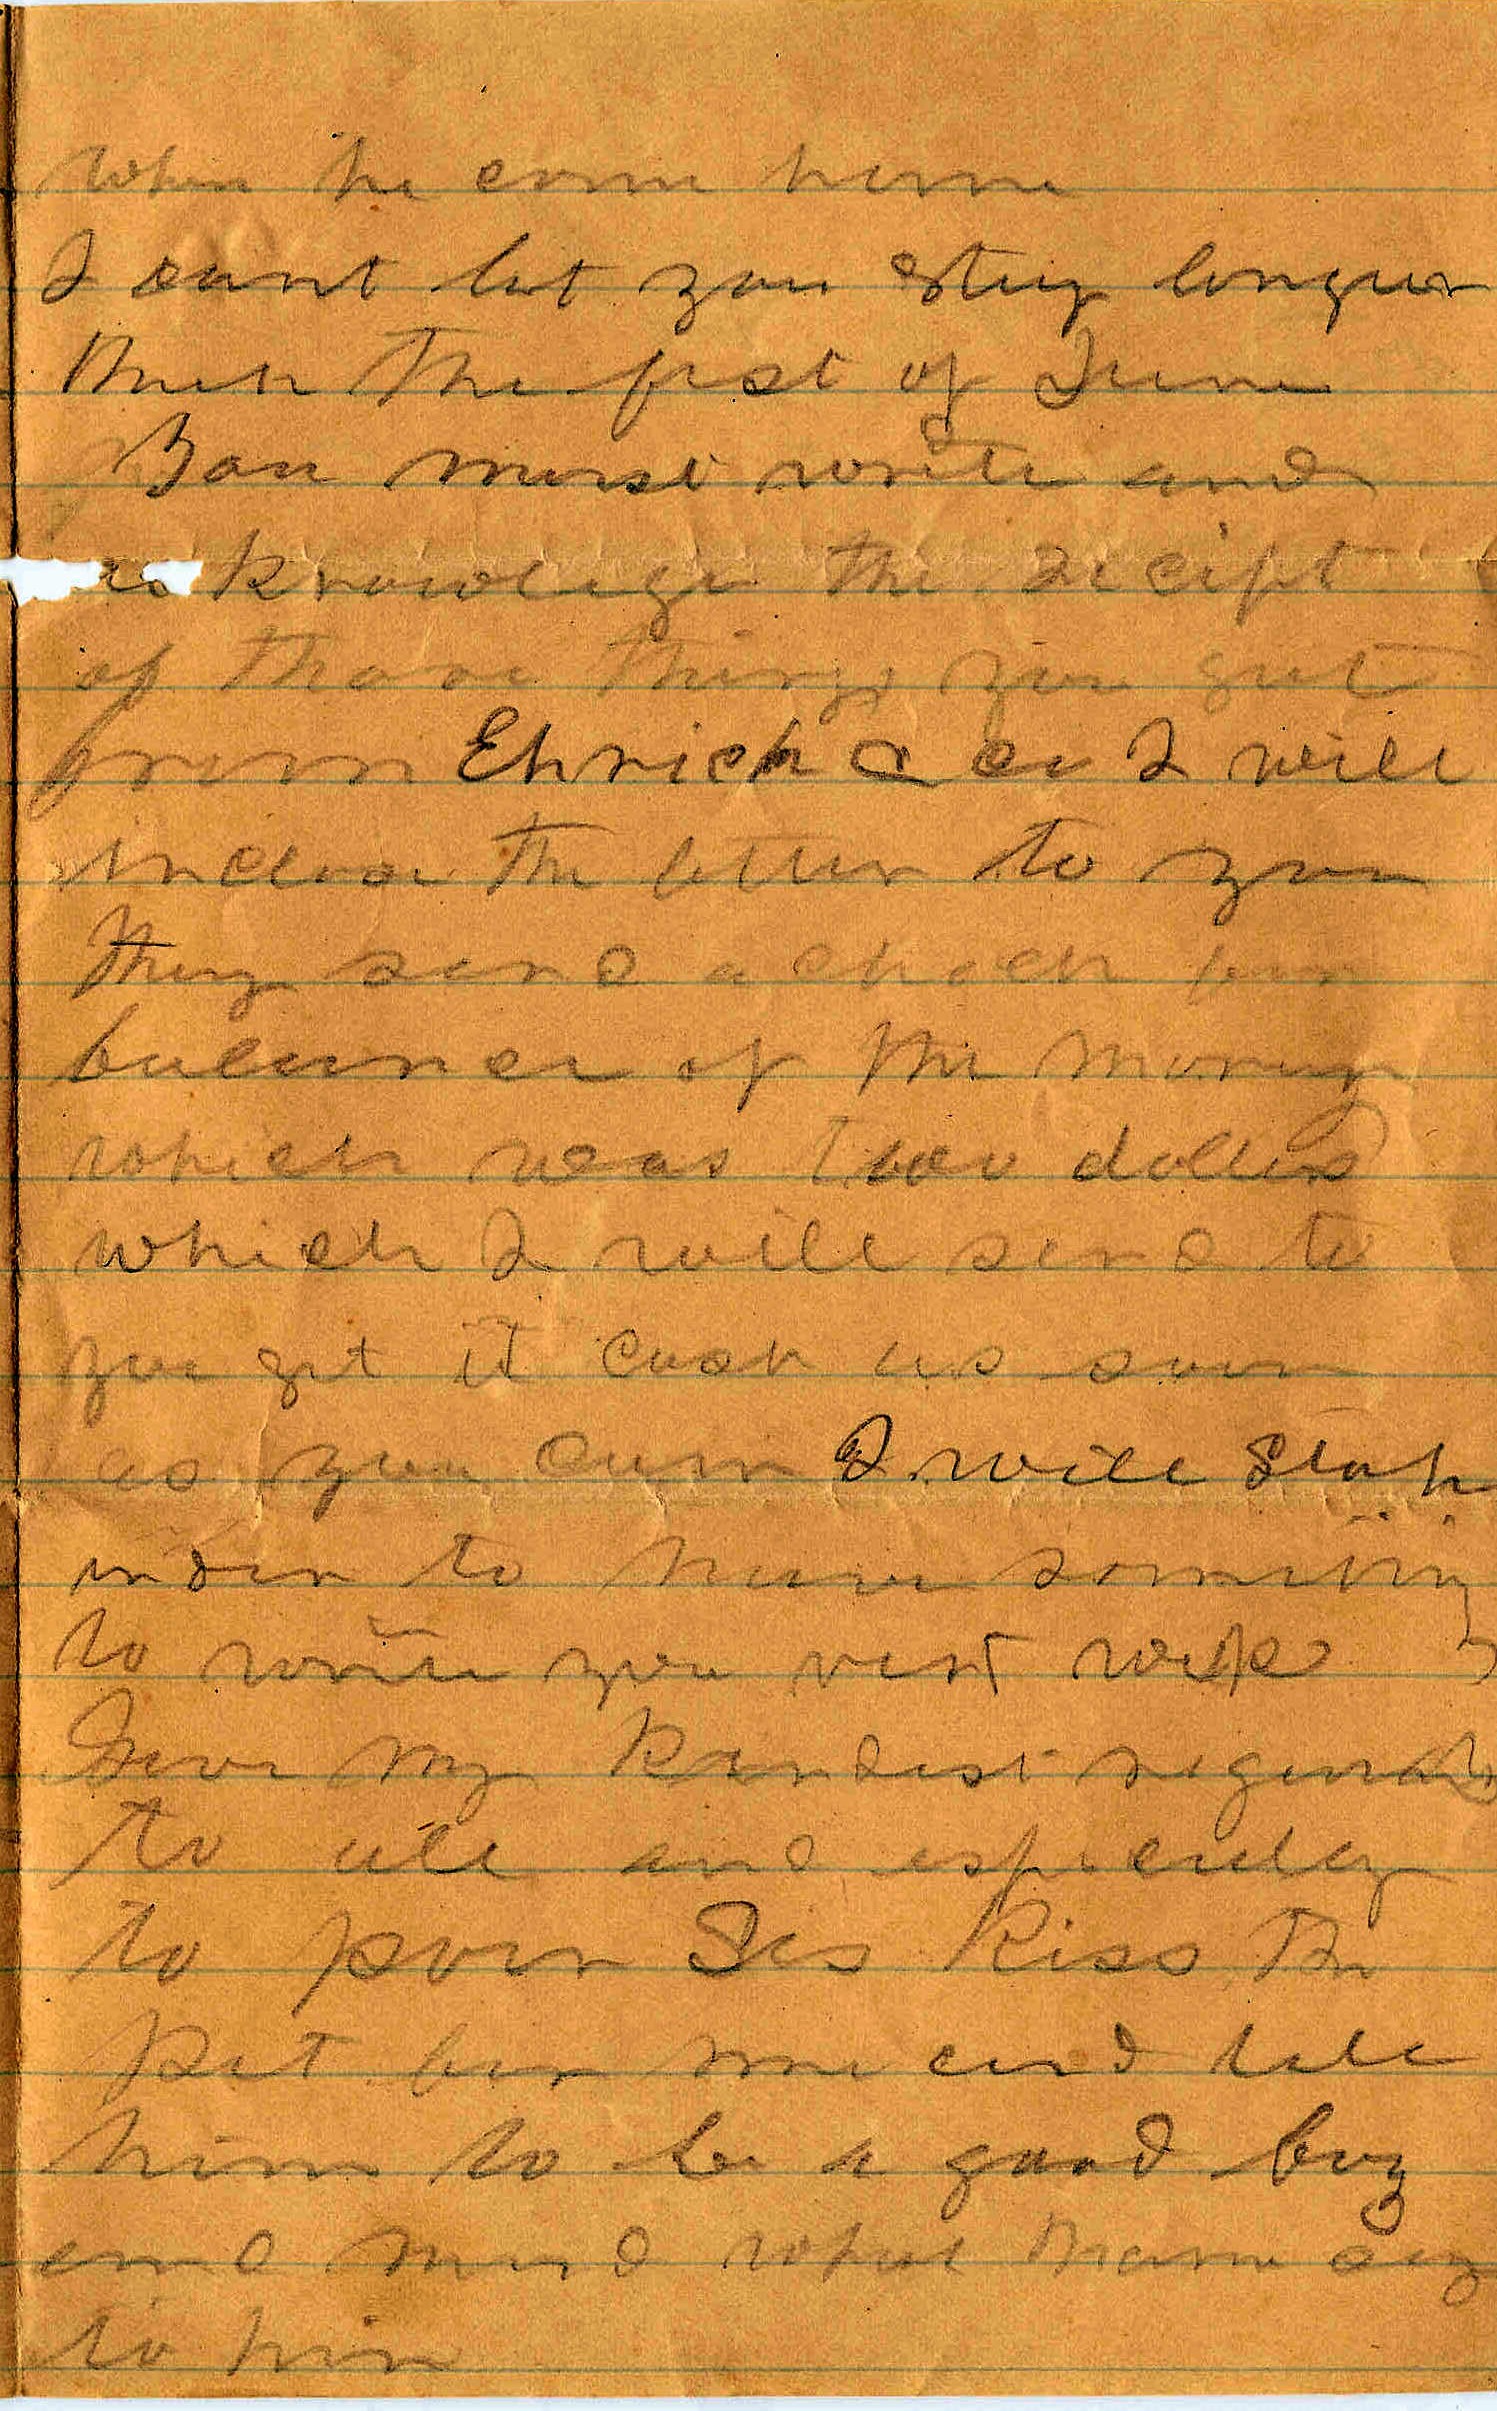 when he come home
I cant let you stay longer
then the first of June
You must write and
acknowlege the recipt
of those things you get
from Ehrich & co I will
inclose the letter to you
they send a check for
balance of the money
which was two dollers
which I will send to
you get it cash as soon
as you can I will stop
in den to have something
to write you next week
Give my kindest regards
to all and especialy
to poor Sis Kiss the
pet for me and tell
him to be a good boy
and mind what mama say
to him